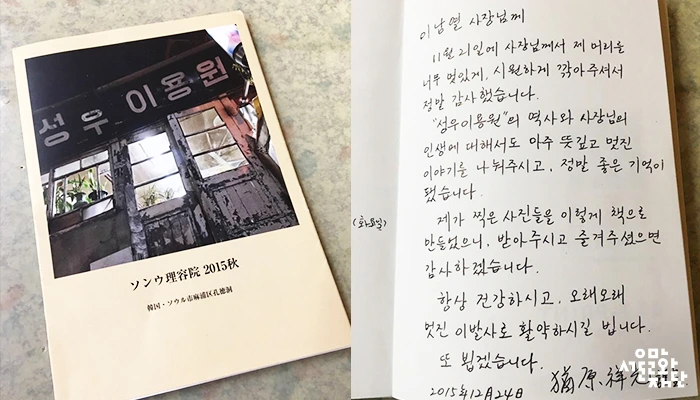 성우이용원
ソンウ理容院 2015秋
韓国・ソウル市麻浦区孔徳洞
이남열 사장님께
11월 21일에 사장님께서 제 머리를
너무 멋있게, 시원하게 깎아주셔서
정말 감사했습니다.
"성우이용원"의 역사와 사장님의
인생에 대해서도 아주 뜻깊고 멋진
이야기를 나눠주시고, 정말 좋은 기억이
됐습니다.
제가 찍은 사진들을 이렇게 책으로
만들었으니, 받아주시고 즐겨주셨으면
감사하겠습니다.
항상 건강하시고, 오래오래
멋진 이발사로 활약하시길 빕니다.
또 뵙겠습니다.
2015年12月24日
原祥